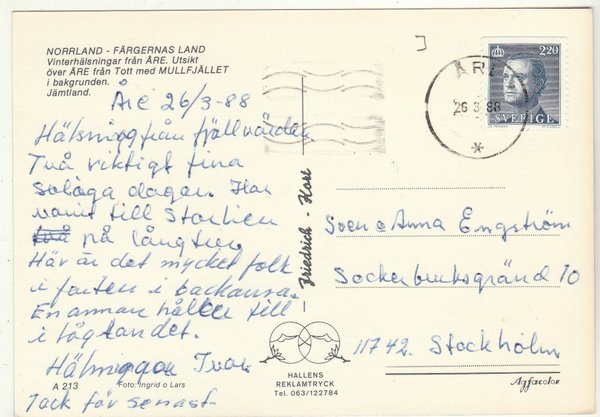 NORRLAND - FÄRGERNAS LAND
Vinterhälsningar från ÅRE. Utsikt
över ÅRE från Tott med MULLFJÄLLET
i bakgrunden.
Jämtland.
Åre 26/3-88
Hälsning från fjällvärlden
Två riktigt fina
soliga dagar. Har
varit till Storlien
på långtur.
Här är det mycket folk
i farten i backarna.
En annan håller till
i låglandet.
Hälsningar Ivar
Tack för senast
A 213
Foto: Ingrid o Lars
Friedrich - Kort
HALLENS
REKLAMTRYCK
Tel. 063/122784
220
SVERIGE
ÅRE
26 3 88
Sven o Anna Engström
Sockerbruksgränd 10
11742. Stockholm
Agfacolor